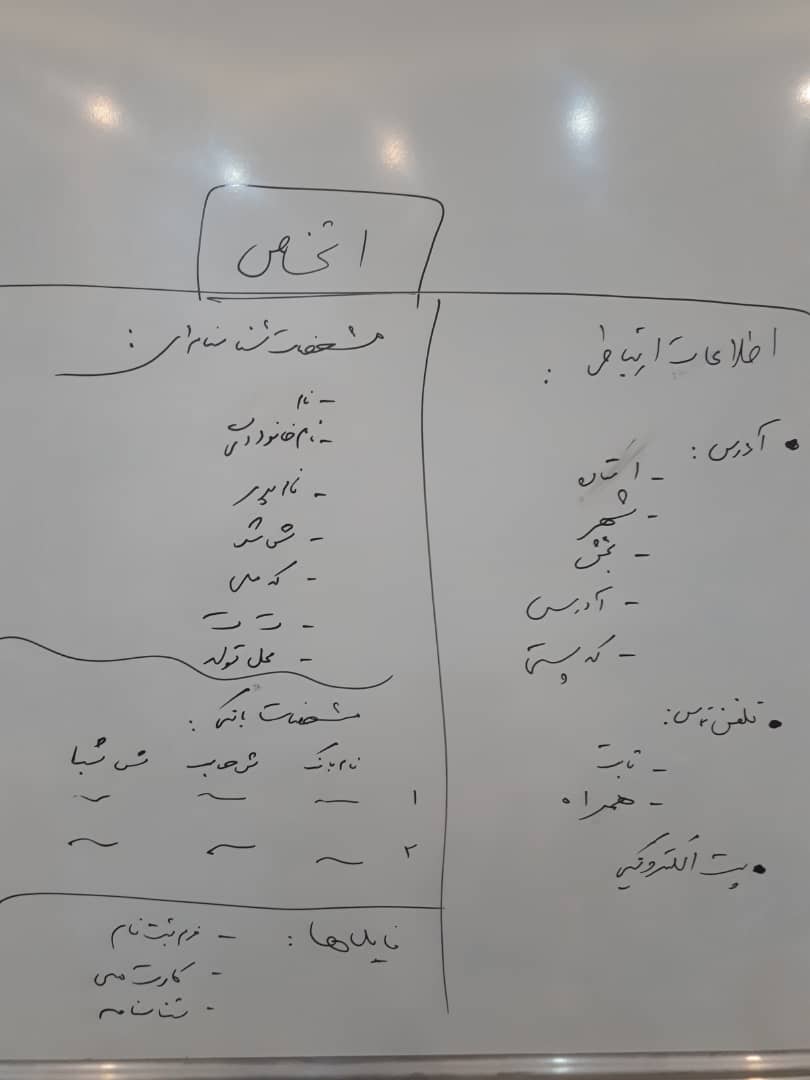 اشخاص
اطلاعات ارتباطی :
• آدرس :
- استان
- شهر
- بخش
- آدرس
- کد پستی
• تلفن تماس :
- ثابت
- همراه
• پست الکترونیکی
مشخصات شناسنامه‌ای :
- نام
- نام خانوادگی
- نام پدر
- ش ش
- کد ملی
- ت ت
- محل تولد
مشخصات بانکی :
نام بانک ش حساب ش شبا
۱
۲
فایل‌ها :
- فرم ثبت نام
- کارت ملی
- شناسنامه